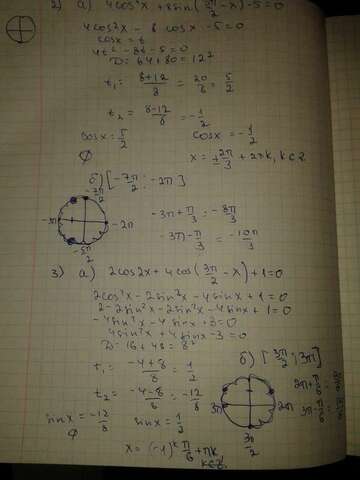 2) а) 4cos²x + 8sin(3π/2 - x) - 5 = 0
4cos²x - 8cosx - 5 = 0
cosx = t
4t² - 8t - 5 = 0
D = 64 + 80 = 12²
t₁ = 8+12/8 = 20/8 = 5/2
t₂ = 8-12/8 = -1/2
cosx = 5/2 cosx = -1/2
∅ x = ± 2π/3 + 2πk, k∈Z
б) [-7π/2 ; -2π]
-7π/2
-3π -2π
-5π/2
-3π + π/3 = -8π/3
-3π - π/3 = -10π/3
3) а) 2cos2x + 4cos(3π/2 - x) + 1 = 0
2cos²x - 2sin²x - 4sinx + 1 = 0
2 - 2sin²x - 2sin²x - 4sinx + 1 = 0
-4sin²x - 4sinx + 3 = 0
4sin²x + 4sinx - 3 = 0
D = 16 + 48 = 8²
t₁ = -4+8/8 = 1/2
t₂ = -4-8/8 = -12/8
sinx = -12/8 sinx = 1/2
∅
x = (-1)ᵏ π/6 + πk
k∈Z
б) [3π/2 ; 3π]
3π 2π
3π/2
2π + π/6 =
3π - π/6 =